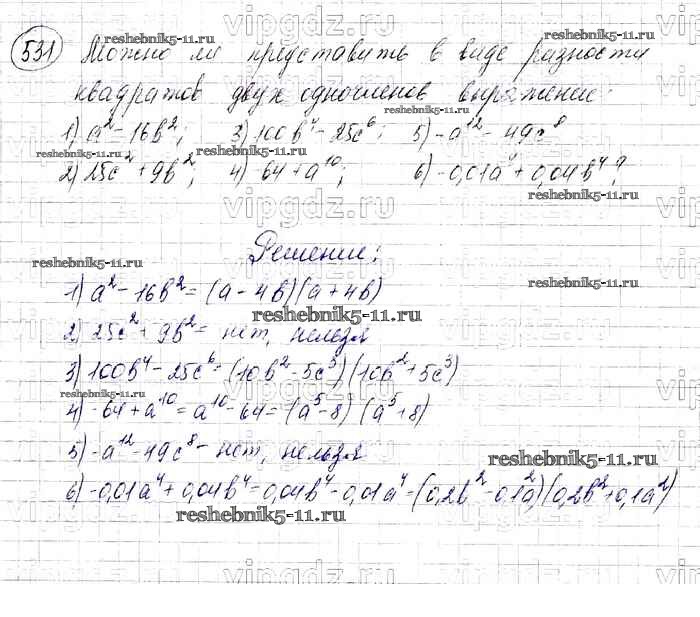 531 Можно ли представить в виде разности
квадратов двух одночленов выражение:
1) a² - 16b²; 3) 100b⁴ - 25c⁶; 5) -a¹² - 49c⁸
2) 25c² + 9b²; 4) -64 + a¹⁰; 6) -0,01a⁴ + 0,04b⁴?
Решение:
1) a² - 16b² = (a - 4b)(a + 4b)
2) 25c² + 9b² = нет, нельзя
3) 100b⁴ - 25c⁶ = (10b² - 5c³)(10b² + 5c³)
4) -64 + a¹⁰ = a¹⁰ - 64 = (a⁵ - 8)(a⁵ + 8)
5) -a¹² - 49c⁸ - нет, нельзя
6) -0,01a⁴ + 0,04b⁴ = 0,04b⁴ - 0,01a⁴ = (0,2b² - 0,1a²)(0,2b² + 0,1a²)
vipgdz.ru
reshebnik5-11.ru